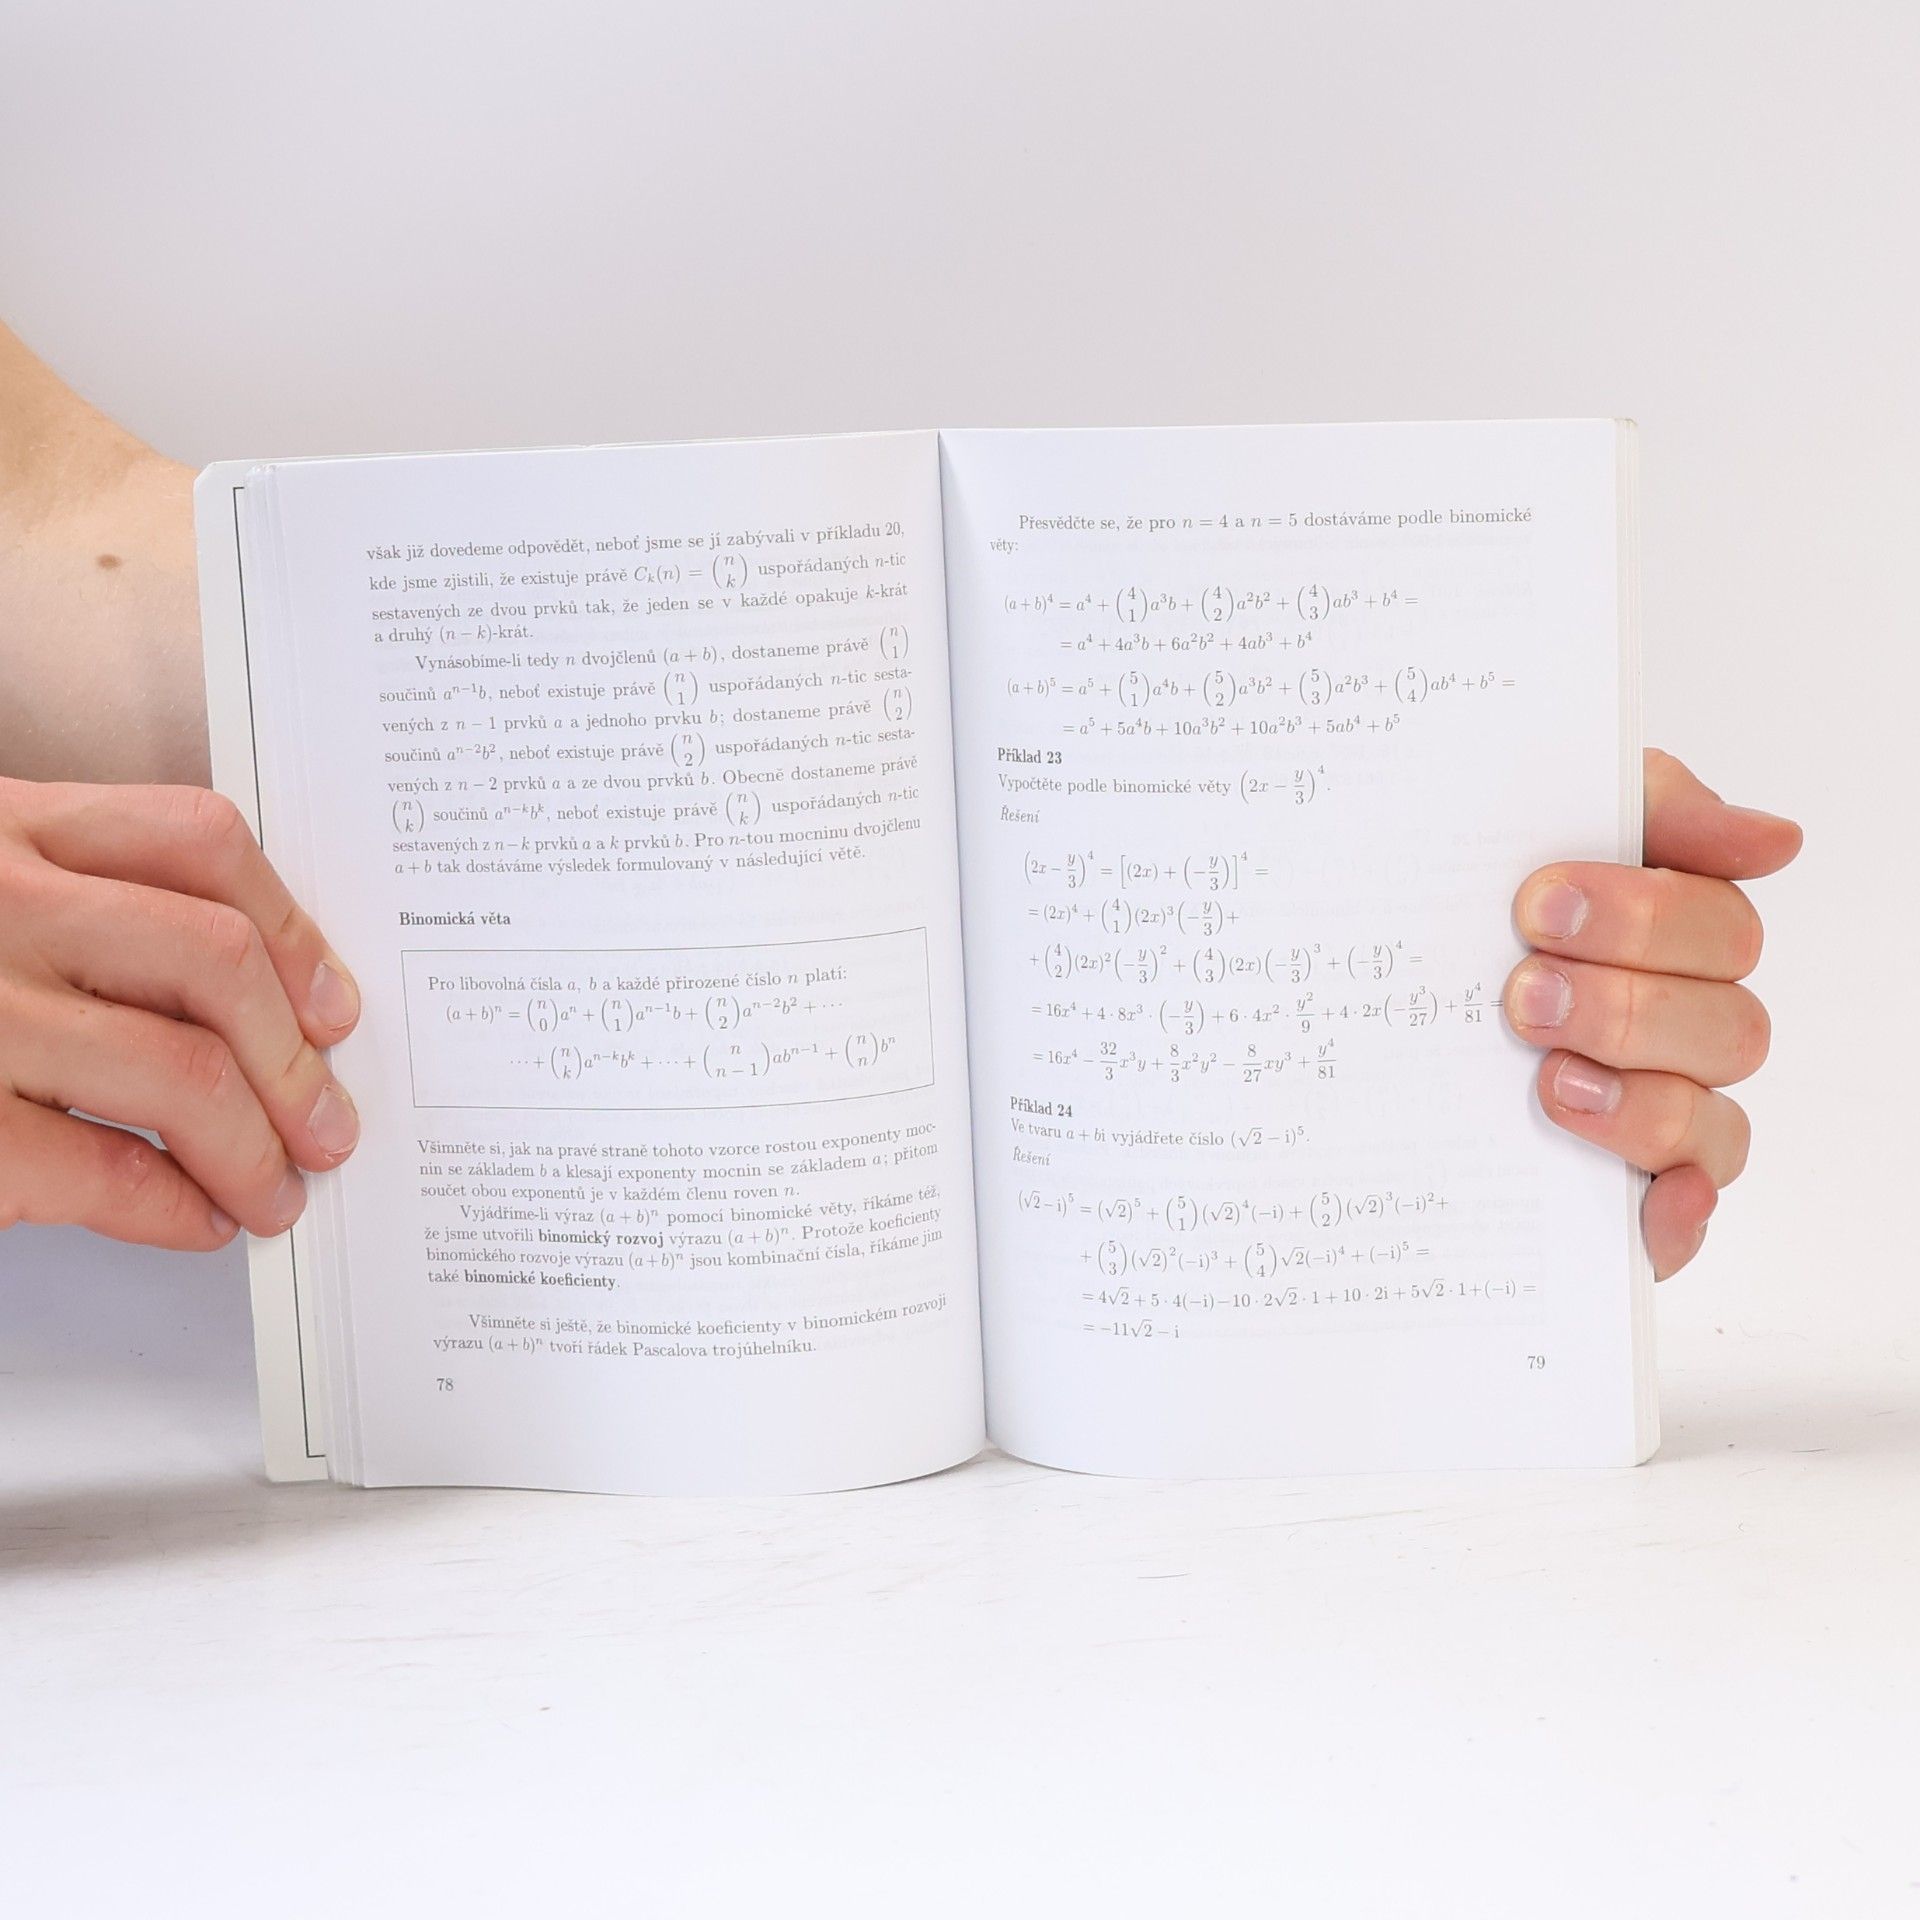 však již dovedeme odpovědět, neboť jsme se jí zabývali v příkladu 20,
kde jsme zjistili, že existuje právě C_k(n) = \binom{n}{k} uspořádaných n-tic
sestavených ze dvou prvků tak, že jeden se v každé opakuje k-krát
a druhý (n − k)-krát.
Vynásobíme-li tedy n dvojčlenů (a + b), dostaneme právě \binom{n}{1}
součinů a^{n−1}b, neboť existuje právě \binom{n}{1} uspořádaných n-tic sesta-
vených z n − 1 prvků a a jednoho prvku b; dostaneme právě \binom{n}{2}
součinů a^{n−2}b^2, neboť existuje právě \binom{n}{2} uspořádaných n-tic sesta-
vených z n − 2 prvků a a ze dvou prvků b. Obecně dostaneme právě
\binom{n}{k} součinů a^{n−k}b^k, neboť existuje právě \binom{n}{k} uspořádaných n-tic
sestavených z n − k prvků a a k prvků b. Pro n-tou mocninu dvojčlenu
a + b tak dostáváme výsledek formulovaný v následující větě.
Binomická věta
Pro libovolná čísla a, b a každé přirozené číslo n platí:
(a + b)^n = \binom{n}{0}a^n + \binom{n}{1}a^{n−1}b + \binom{n}{2}a^{n−2}b^2 + ···
··· + \binom{n}{k}a^{n−k}b^k + ··· + \binom{n}{n−1}ab^{n−1} + \binom{n}{n}b^n
Všimněte si, jak na pravé straně tohoto vzorce rostou exponenty moc-
nin se základem b a klesají exponenty mocnin se základem a; přitom
součet obou exponentů je v každém členu roven n.
Vyjádříme-li výraz (a + b)^n pomocí binomické věty, říkáme též,
že jsme utvořili binomický rozvoj výrazu (a + b)^n. Protože koeficienty
binomického rozvoje výrazu (a + b)^n jsou kombinační čísla, říkáme jim
také binomické koeficienty.
Všimněte si ještě, že binomické koeficienty v binomickém rozvoji
výrazu (a + b)^n tvoří řádek Pascalova trojúhelníku.
78
Přesvědčte se, že pro n = 4 a n = 5 dostáváme podle binomické
věty:
(a + b)^4 = a^4 + \binom{4}{1}a^3b + \binom{4}{2}a^2b^2 + \binom{4}{3}ab^3 + b^4 =
= a^4 + 4a^3b + 6a^2b^2 + 4ab^3 + b^4
(a + b)^5 = a^5 + \binom{5}{1}a^4b + \binom{5}{2}a^3b^2 + \binom{5}{3}a^2b^3 + \binom{5}{4}ab^4 + b^5 =
= a^5 + 5a^4b + 10a^3b^2 + 10a^2b^3 + 5ab^4 + b^5
Příklad 23
Vypočtěte podle binomické věty (2x − \frac{y}{3})^4.
Řešení
(2x − \frac{y}{3})^4 = [(2x) + (−\frac{y}{3})]^4 =
= (2x)^4 + \binom{4}{1}(2x)^3(−\frac{y}{3}) +
+ \binom{4}{2}(2x)^2(−\frac{y}{3})^2 + \binom{4}{3}(2x)(−\frac{y}{3})^3 + (−\frac{y}{3})^4 =
= 16x^4 + 4 · 8x^3 · (−\frac{y}{3}) + 6 · 4x^2 · \frac{y^2}{9} + 4 · 2x(−\frac{y^3}{27}) + \frac{y^4}{81} =
= 16x^4 − \frac{32}{3}x^3y + \frac{8}{3}x^2y^2 − \frac{8}{27}xy^3 + \frac{y^4}{81}
Příklad 24
Ve tvaru a + bi vyjádřete číslo (√2 − i)^5.
Řešení
(√2 − i)^5 = (√2)^5 + \binom{5}{1}(√2)^4(−i) + \binom{5}{2}(√2)^3(−i)^2 +
+ \binom{5}{3}(√2)^2(−i)^3 + \binom{5}{4}√2(−i)^4 + (−i)^5 =
= 4√2 + 5 · 4(−i) − 10 · 2√2 · 1 + 10 · 2i + 5√2 · 1 + (−i) =
= −11√2 − i
79